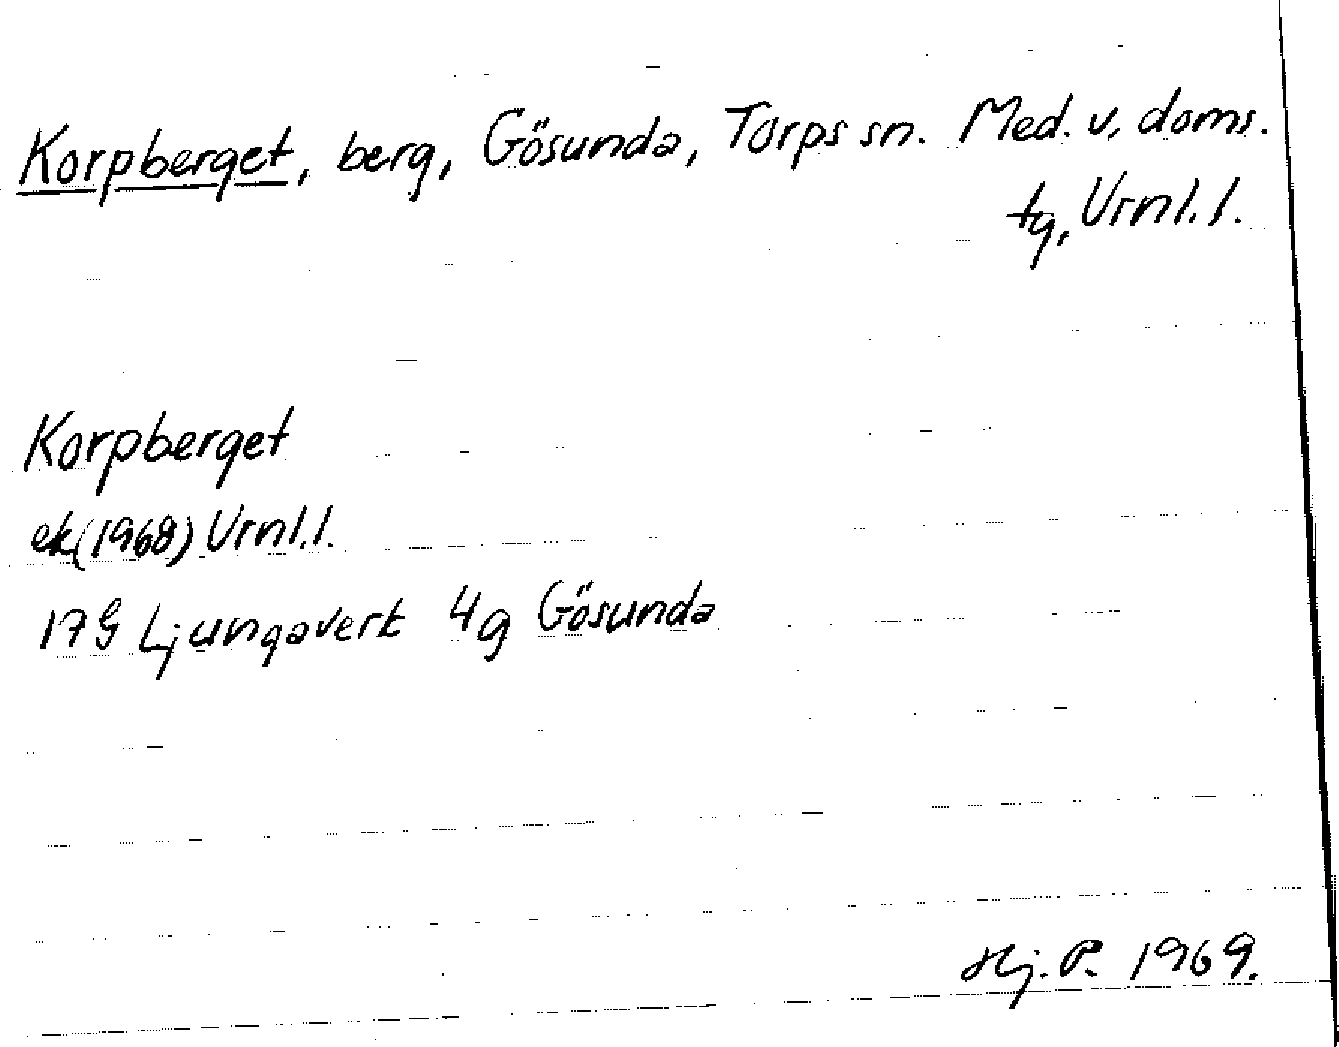 Korpberget, berg, Gösunda, Torps sn. Med. v. doms.
tg, Vrnl. l.
Korpberget
ek (1968) Vrnl. l.
17G Ljungaverk 4g Gösunda
Hj. P. 1969.